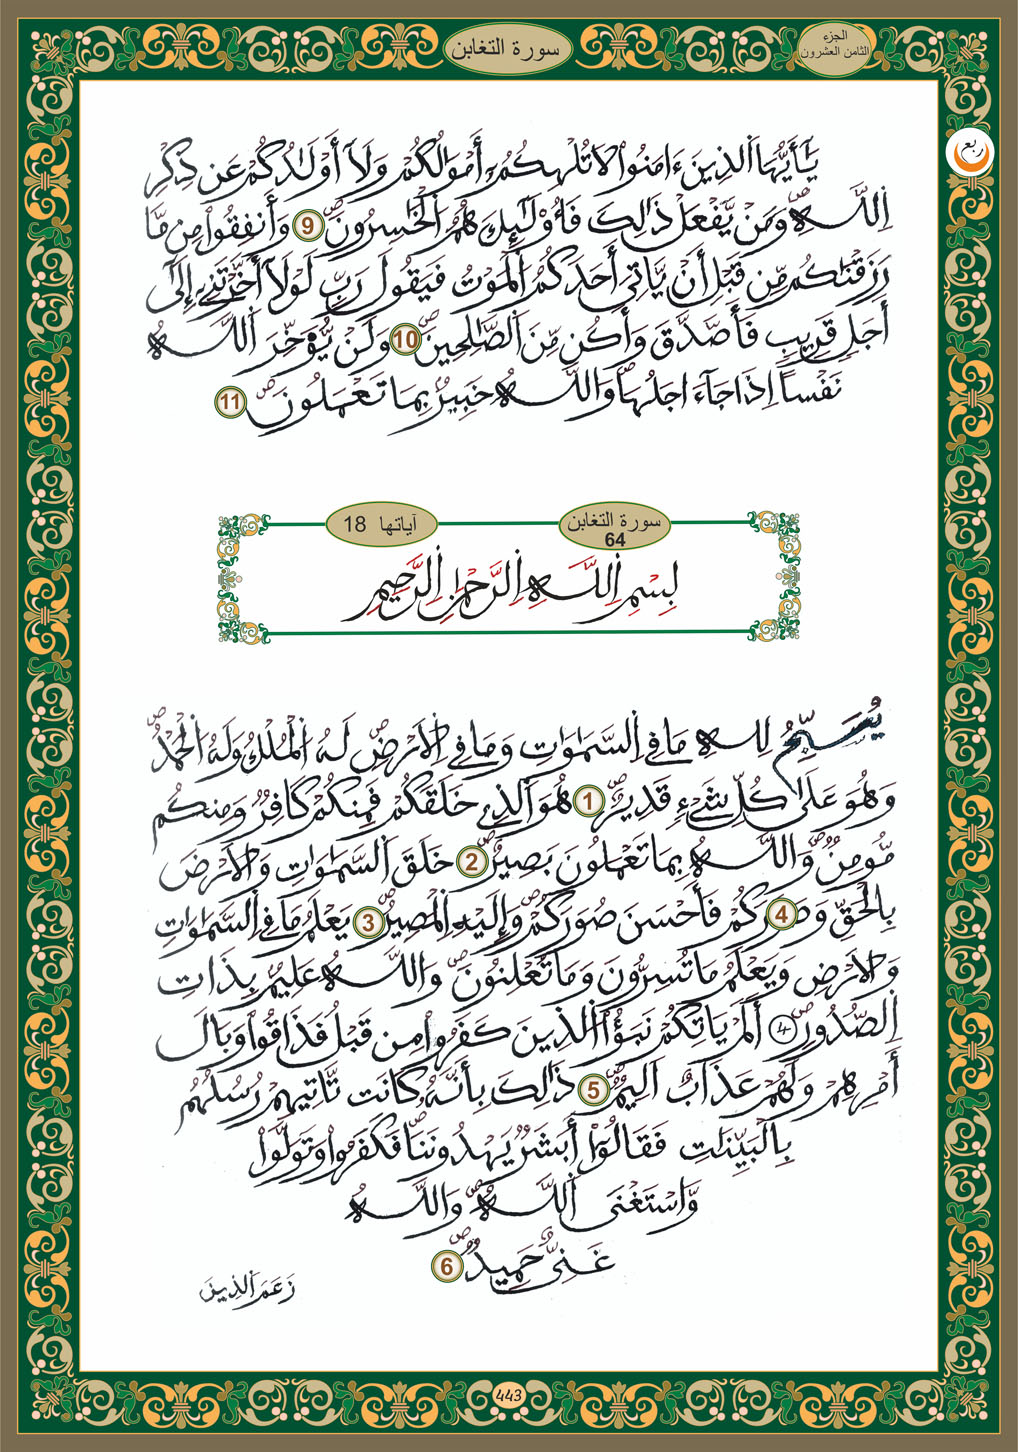 سورة التغابن
الجزء
الثامن العشرون
ربع
يَٰٓأَيُّهَا اَ۬لذِينَ ءَامَنُواْ لَا تُلْهِكُمُۥٓ أَمْوَٰلُكُمْ وَلَآ أَوْلَٰدُكُمْ عَن ذِكْرِ
اِ۬للَّهِۖ وَمَنْ يَّفْعَلْ ذَٰلِكَ فَأُوْلَٰٓئِكَ هُمُ اُ۬لْخَٰسِرُونَۖ 9 وَأَنفِقُواْ مِن مَّا
رَزَقْنَٰكُم مِّن قَبْلِ أَنْ يَّاتِيَ أَحَدَكُمُ اُ۬لْمَوْتُ فَيَقُولَ رَبِّ لَوْلَآ أَخَّرْتَنِےٓ إِلَىٰٓ
أَجَلٖ قَرِيبٖ فَأَصَّدَّقَ وَأَكُن مِّنَ اَ۬لصَّٰلِحِينَۖ 10 وَلَنْ يُّؤَخِّرَ اَ۬للَّهُ
نَفْساً اِذَا جَآءَ اجَلُهَاۖ وَاللَّهُ خَبِيرُۢ بِمَا تَعْمَلُونَۖ 11
سورة التغابن
64
آياتها 18
بِسْمِ اِ۬للَّهِ اِ۬لرَّحْمَٰنِ اِ۬لرَّحِيمِ
يُسَبِّحُ لِلهِ مَا فِے اِ۬لسَّمَٰوَٰتِ وَمَا فِے اِ۬لَارْضِۖ لَهُ اُ۬لْمُلْكُ وَلَهُ اُ۬لْحَمْدُۖ
وَهُوَ عَلَىٰ كُلِّ شَےْءٖ قَدِيرٌۖ 1 هُوَ اَ۬لذِے خَلَقَكُمْ فَمِنكُمْ كَافِرٞ وَمِنكُم
مُّومِنٞۖ وَاللَّهُ بِمَا تَعْمَلُونَ بَصِيرٌۖ 2 خَلَقَ اَ۬لسَّمَٰوَٰتِ وَالَارْضَ
بِالْحَقِّ وَصَوَّرَكُمْ 4 فَأَحْسَنَ صُوَرَكُمْۖ وَإِلَيْهِ اِ۬لْمَصِيرُۖ 3 يَعْلَمُ مَا فِے اِ۬لسَّمَٰوَٰتِ
وَالَارْضِ وَيَعْلَمُ مَا تُسِرُّونَ وَمَا تُعْلِنُونَۖ وَاللَّهُ عَلِيمُۢ بِذَاتِ
اِ۬لصُّدُورِۖ ٤ أَلَمْ يَاتِكُمْ نَبَؤُاْ اُ۬لذِينَ كَفَرُواْ مِن قَبْلُ فَذَاقُواْ وَبَالَ
أَمْرِهِمْ وَلَهُمْ عَذَابٌ اَلِيمٞۖ 5 ذَٰلِكَ بِأَنَّهُۥ كَانَت تَّاتِيهِمْ رُسُلُهُم
بِالْبَيِّنَٰتِ فَقَالُوٓاْ أَبَشَرٞ يَهْدُونَنَا فَكَفَرُواْ وَتَوَلَّواْ
وَّاسْتَغْنَى اَ۬للَّهُۖ وَاللَّهُ
غَنِيٌّ حَمِيدٞۖ 6
زَعَمَ اَ۬لذِينَ
443